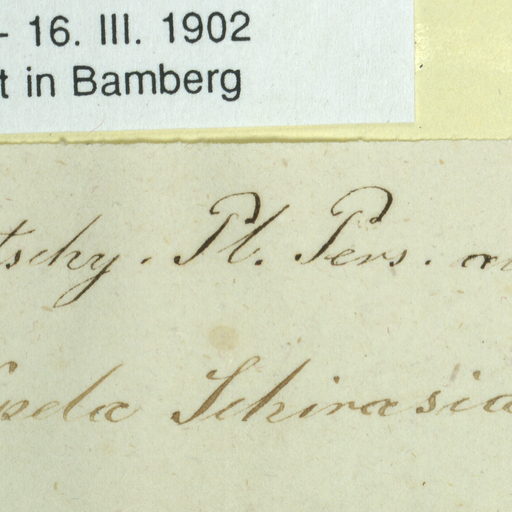 - 16. III. 1902
t in Bamberg
tschy. Pl. Pers.
Schirasia